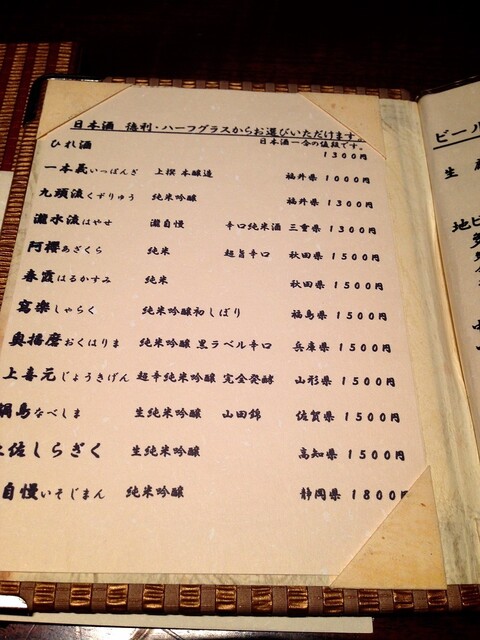 日本酒 徳利・ハーフグラスからお選びいただけます。
日本酒一合の値段です。
ひれ酒 1300円
一本義いっぽんぎ 上撰 本醸造 福井県 1000円
九頭流くずりゅう 純米吟醸 福井県 1300円
瀧水流はやせ 瀧自慢 辛口純米酒 三重県 1300円
阿櫻あざくら 純米 超旨辛口 秋田県 1500円
春霞はるかすみ 純米 秋田県 1500円
寫楽しゃらく 純米吟醸初しぼり 福島県 1500円
奥播磨おくはりま 純米吟醸 黒ラベル辛口 兵庫県 1500円
上喜元じょうきげん 超辛純米吟醸 完全発酵 山形県 1500円
鍋島なべしま 生純米吟醸 山田錦 佐賀県 1500円
土佐しらぎく 生純米吟醸 高知県 1500円
自慢いそじまん 純米吟醸 静岡県 1800円
ビール
生
地ビ